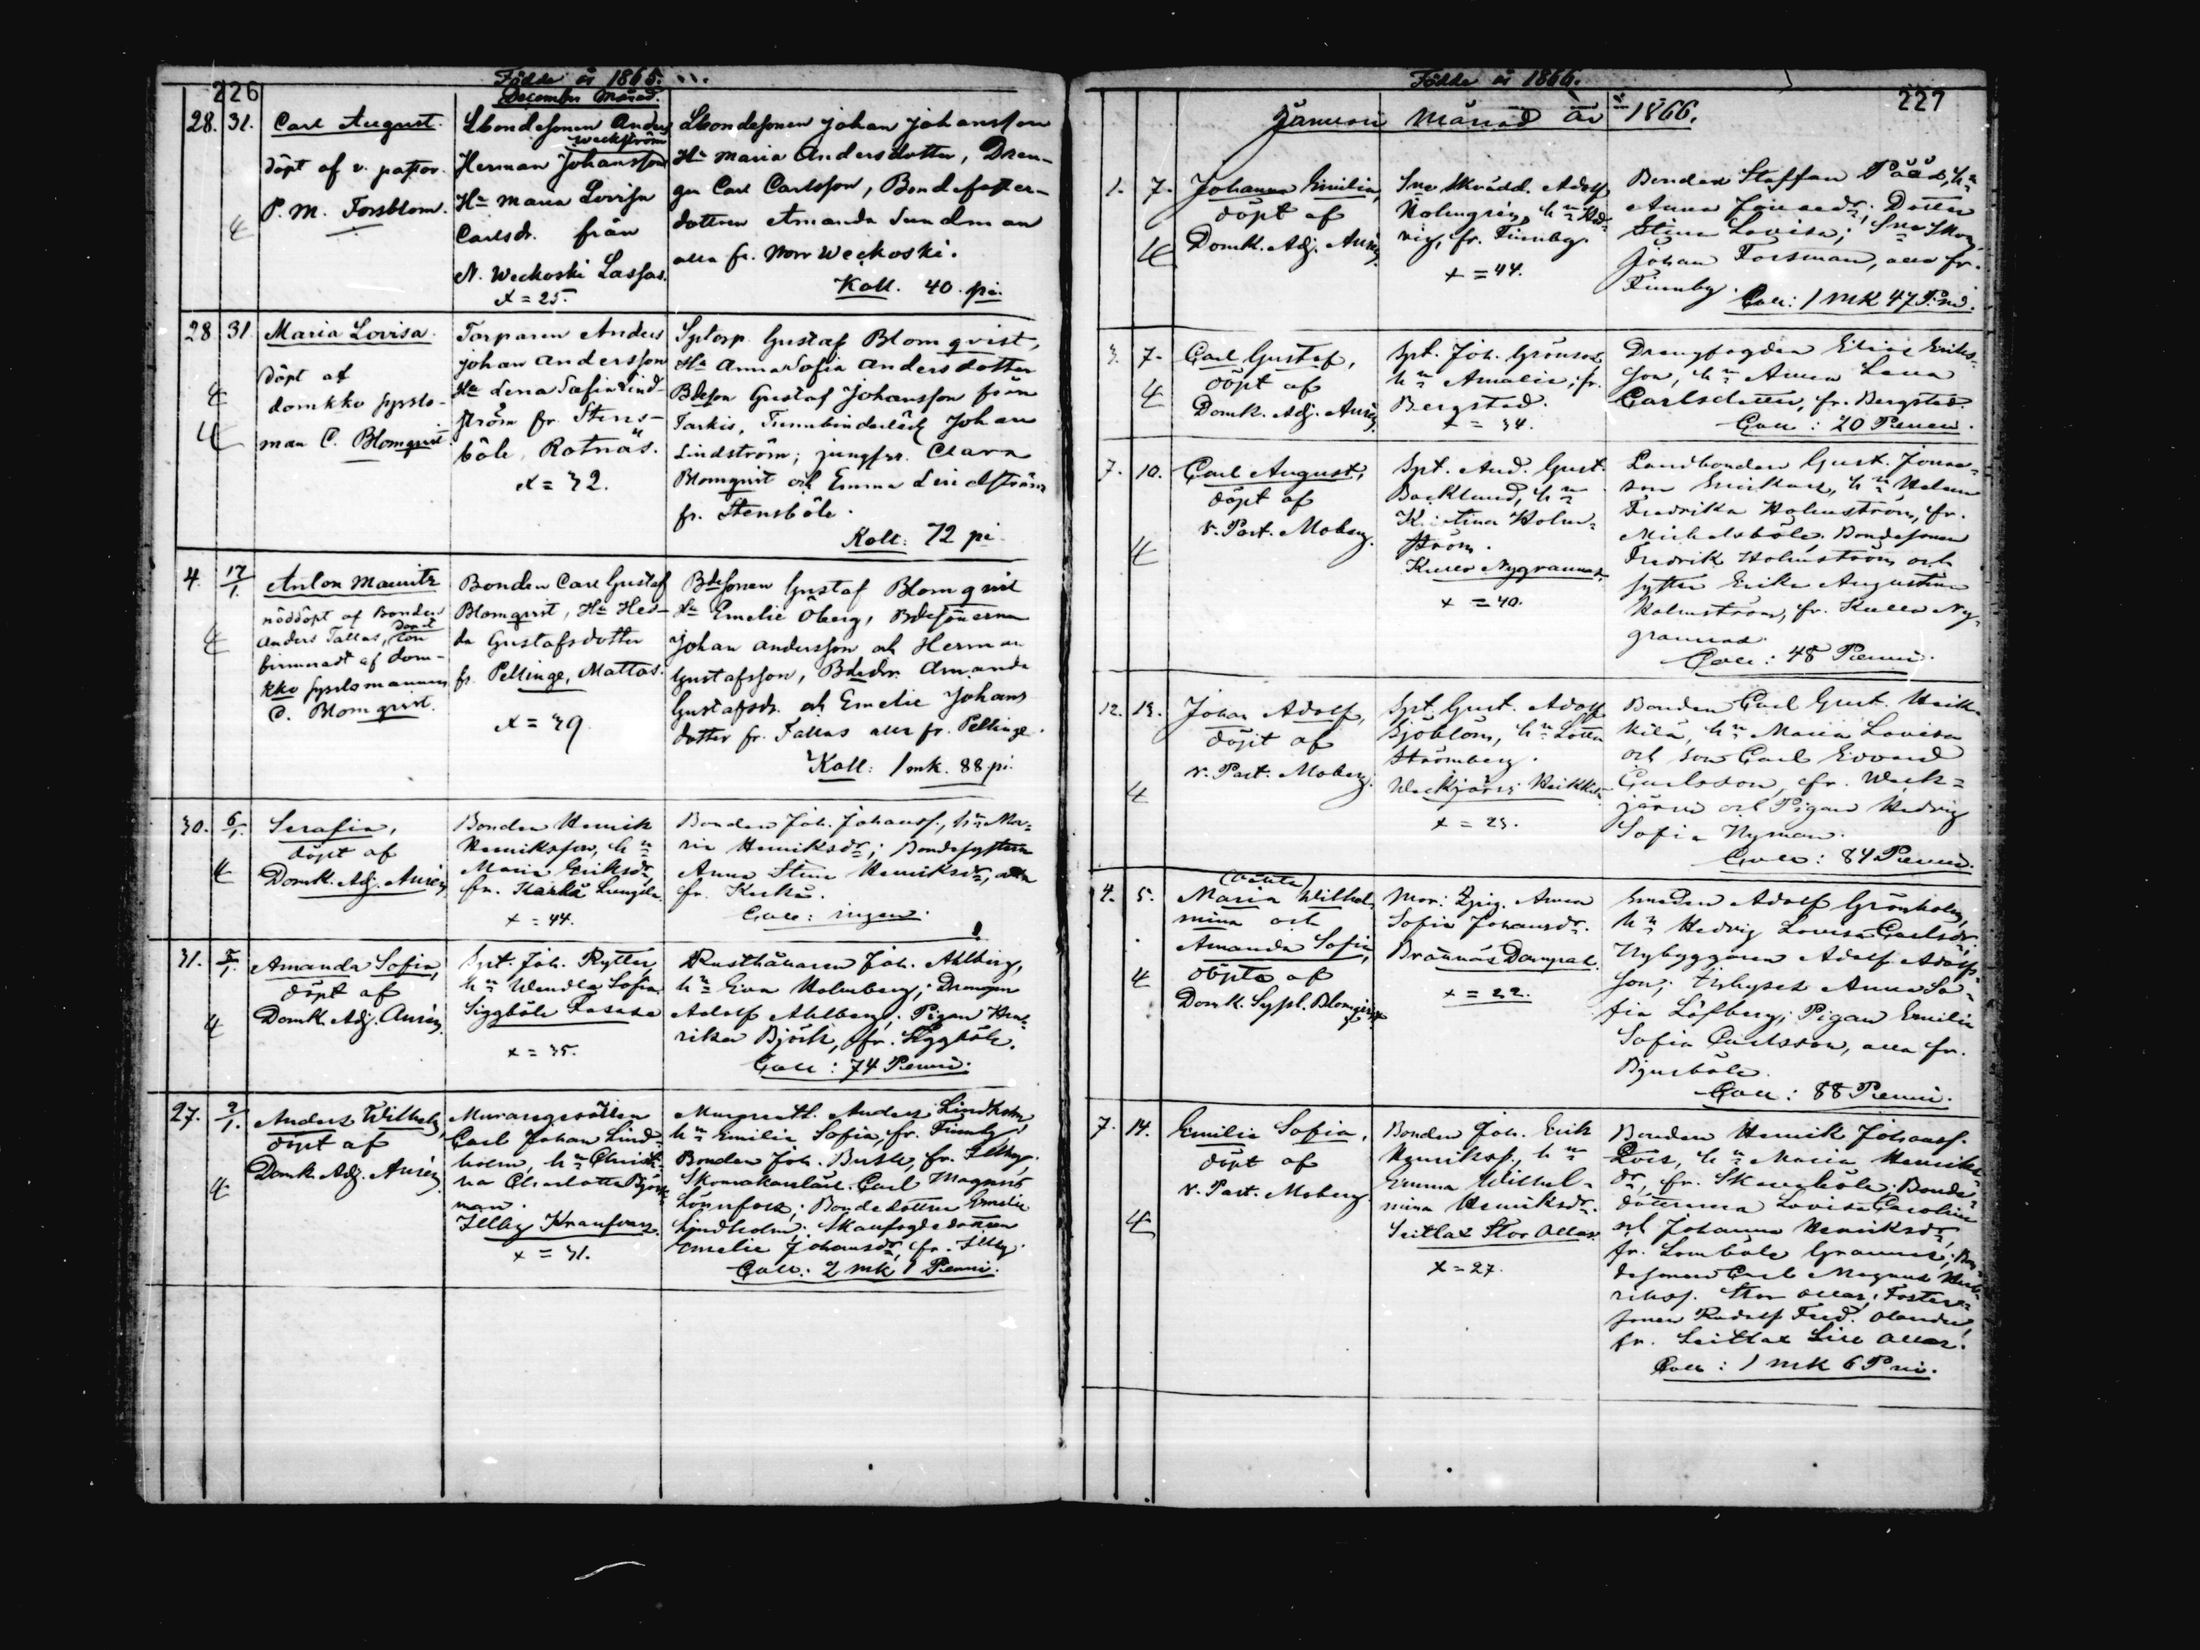 226
Födde år 1865.
December Månad.
28. 31. Carl August.
döpt af v. pastor.
P. M. Forsblom.
Lbondesonen Anders
Weckström
Herman Johansson
Hu Maria Lovisa
Carlsdr. från
N. Weckoski Lassas.
x = 25.
Lbondesonen Johan Johansson
Hu Maria Andersdotter, Dren-
gen Carl Carlsson, Bondefoster-
dottren Amanda Sundman
alla fr. Norr Weckoski.
Koll. 40 pi.
28 31 Maria Lovisa.
döpt af
domkko sysslo-
man C. Blomqvist
Torparen Anders
Johan Andersson
Hu Lena Sofia Lind-
ström fr. Stens-
böle, Rotnäs.
x = 32.
Sytorp. Gustaf Blomqvist,
Hu Anna Sofia Andersdotter
Bdeson Gustaf Johansson från
Tarkis, Tunnbinderlärl Johan
Lindström; jungfr. Clara
Blomqvist och Emma Lindström
fr. Stensböle.
Koll: 72 pi
4. 17/1. Anton Mauritz
nöddöpt af Bonden
Anders Tallas, dopet con
firmeradt af dom-
kko sysslomannen
C. Blomqvist.
Bonden Carl Gustaf
Blomqvist, Hu Hed-
da Gustafsdotter
fr. Pellinge, Mattas.
x = 39.
Bdesonen Gustaf Blomqvist
Hu Emelie Öberg, Bdesönerna
Johan Andersson och Herman
Gustafsson, Bdedr. Amanda
Gustafsdr. och Emelie Johans
dotter fr. Tallas alla fr. Pellinge.
Koll: 1 mk. 88 pi.
30. 6/1. Serafia,
döpt af
Domk. Adj. Aurén
Bonden Henrik
Henriksson, hu
Maria Eriksdr,
fr. Kerkå Lungila.
x = 44.
Bonden Joh. Johanss., hu Ma-
ria Henriksdr; Bondesystern
Anna Stina Henriksdr, alla
fr. Kerkå.
Coll: ingen.
31. 7/1. Amanda Sofia,
döpt af
Domk. Adj. Aurén
Spt. Joh. Rytter,
hu Wendla Sofia
Siggböle Lasasa
x = 35.
Rusthållaren Joh. Ahlberg,
hu Eva Holmberg; Drengen
Adolf Ahlberg; Pigan Hen-
rika Björk, fr. Siggböle.
Coll: 74 Penni.
27. 2/1. Anders Wilhelm,
döpt af
Domk. Adj. Aurén
Muraregesällen
Carl Johan Lind-
holm, hu Christi-
na Charlotta Björk-
man.
Illby Kransvars.
x = 31.
Anders Lindholm,
hu Emilia Sofia, fr. Finnby;
Bonden Joh. Busk, fr. Illby;
Skomakarelärl. Carl Magnus
Lönnfors; Bondedottren Emilie
Lindholm; Skaufogdedottren
Emelie Johansdr, fr. Illby.
Coll: 2 mk 1 Penni.
Födde år 1866.
227
Januari Månad år 1866.
1. 7. Johanna Emilia,
döpt af
Domk. Adj. Aurén.
Sne Skrädd. Adolf
Holmgrén, hu Hed-
vig, fr. Finnby.
x = 44.
Bonden Staffan Pääd, hu
Anna Jonaedr; Dotter
Stina Lovisa; Sne Skom.
Johan Forsman, alla fr.
Finnby.
Coll: 1 mk 47 P:ni.
3. 7. Carl Gustaf,
döpt af
Domk. Adj. Aurén.
Spt. Joh. Grönroos,
hu Amalia, fr.
Bergstad.
x = 34.
Drengfogden Elias Eriks-
son, hu Anna Lena
Carlsdotter, fr. Bergstad.
Coll: 20 Penni.
7. 10. Carl August,
döpt af
v. Past. Moberg.
Spt. And. Gust.
Backlund, hu
Kristina Holm-
ström.
Kullo Nygrannas.
x = 40.
Landbonden Gust. Jonas-
son Erickas, hu Helena
Fredrika Holmström, fr.
Michelsböle. Bondesonen
Fredrik Holmström och
syster Erika Augustina
Holmström, fr. Kullo Ny-
grannas.
Coll: 48 Penni.
12. 13. Johan Adolf,
döpt af
v. Past. Moberg.
Spt. Gust. Adolf
Sjöblom, hu Lotta
Strömberg.
Weckjärvi Heikkilä.
x = 23.
Bonden Carl Gust. Heik-
kilä, hu Maria Lovisa
och son Carl Edvard
Carlsson, fr. Weck-
järvi och Pigan Hedvig
Sofia Nyman.
Coll: 84 Penni.
4. 5. (oäkta)
Maria Wilhel-
mina och
Amanda Sofia,
döpta af
Domk. Syssl. Blomqvist
Mor: Anna
Sofia Johansdr.
Brännäs Dampal.
x = 22.
Smeden Adolf Grönholm,
hu Hedvig Lovisa Carlsdr;
Nybyggaren Adolf Adolfs-
son; Anna So-
fia Löfberg; Pigan Emilia
Sofia Carlsson, alla fr.
Bjursböle.
Coll: 88 Penni.
7. 14. Emilia Sofia,
döpt af
v. Past. Moberg.
Bonden Joh. Erik
Henrikss., hu
Emma Wilhel-
mina Henriksdr.
Seitlax Stor Ollas.
x = 27.
Bonden Henrik Johanss.
hu Maria Henriks-
dr, fr. Skavböle; Bonde-
döttrarna Lovisa Carolina
och Johanna Henriksdr,
fr. Lomböle Grannas; Bon-
desonen Carl Magnus Hen-
rikss. Stor Ollas; Foster-
sonen Rudolf Fred. Olander,
fr. Seitlax Lill Ollas.
Coll: 1 mk 6 P:ni.